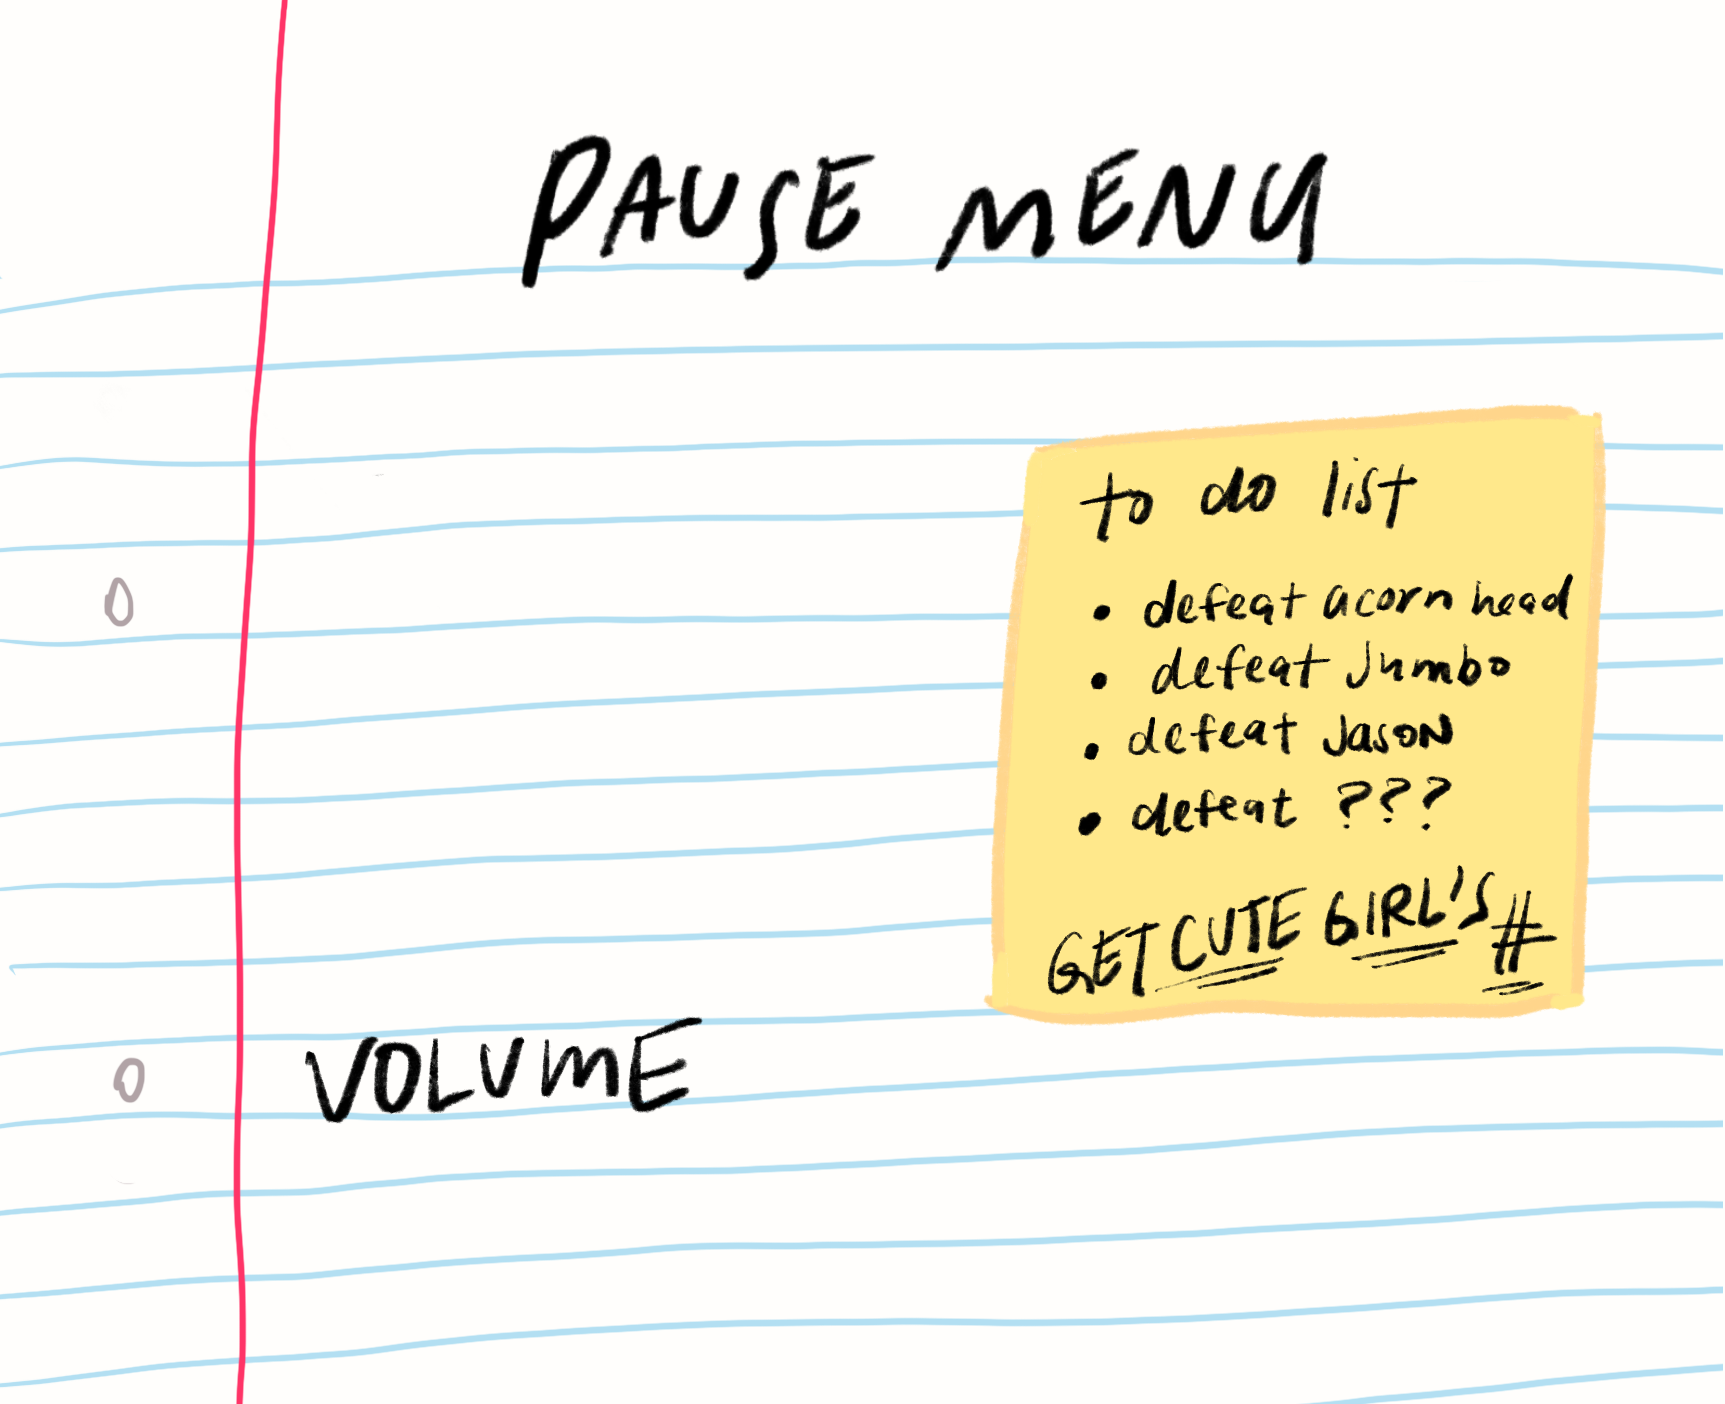 PAUSE MENU
to do list
• defeat acorn head
• defeat Jumbo
• defeat Jason
• defeat ???
GET CUTE GIRL'S #
VOLUME